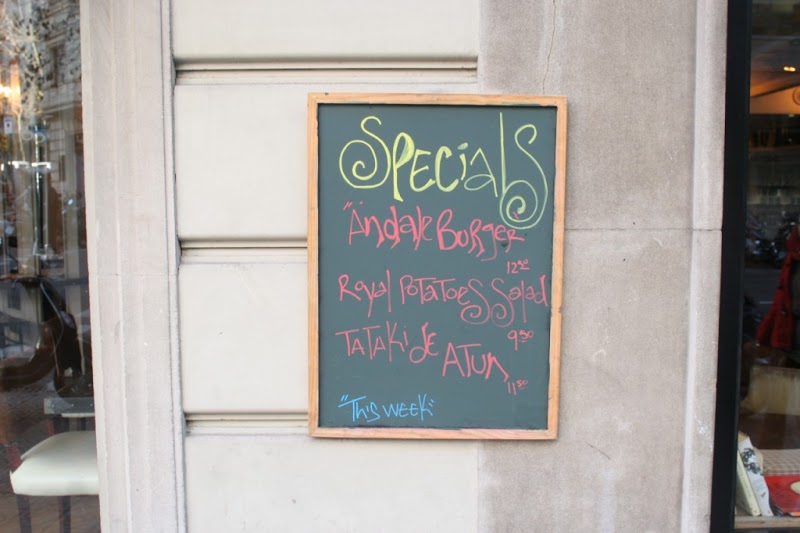 Specials
"Andale Burger"
12'50
Royal Potatoes Salad
9'50
Tataki de Atun
11'50
"This week"